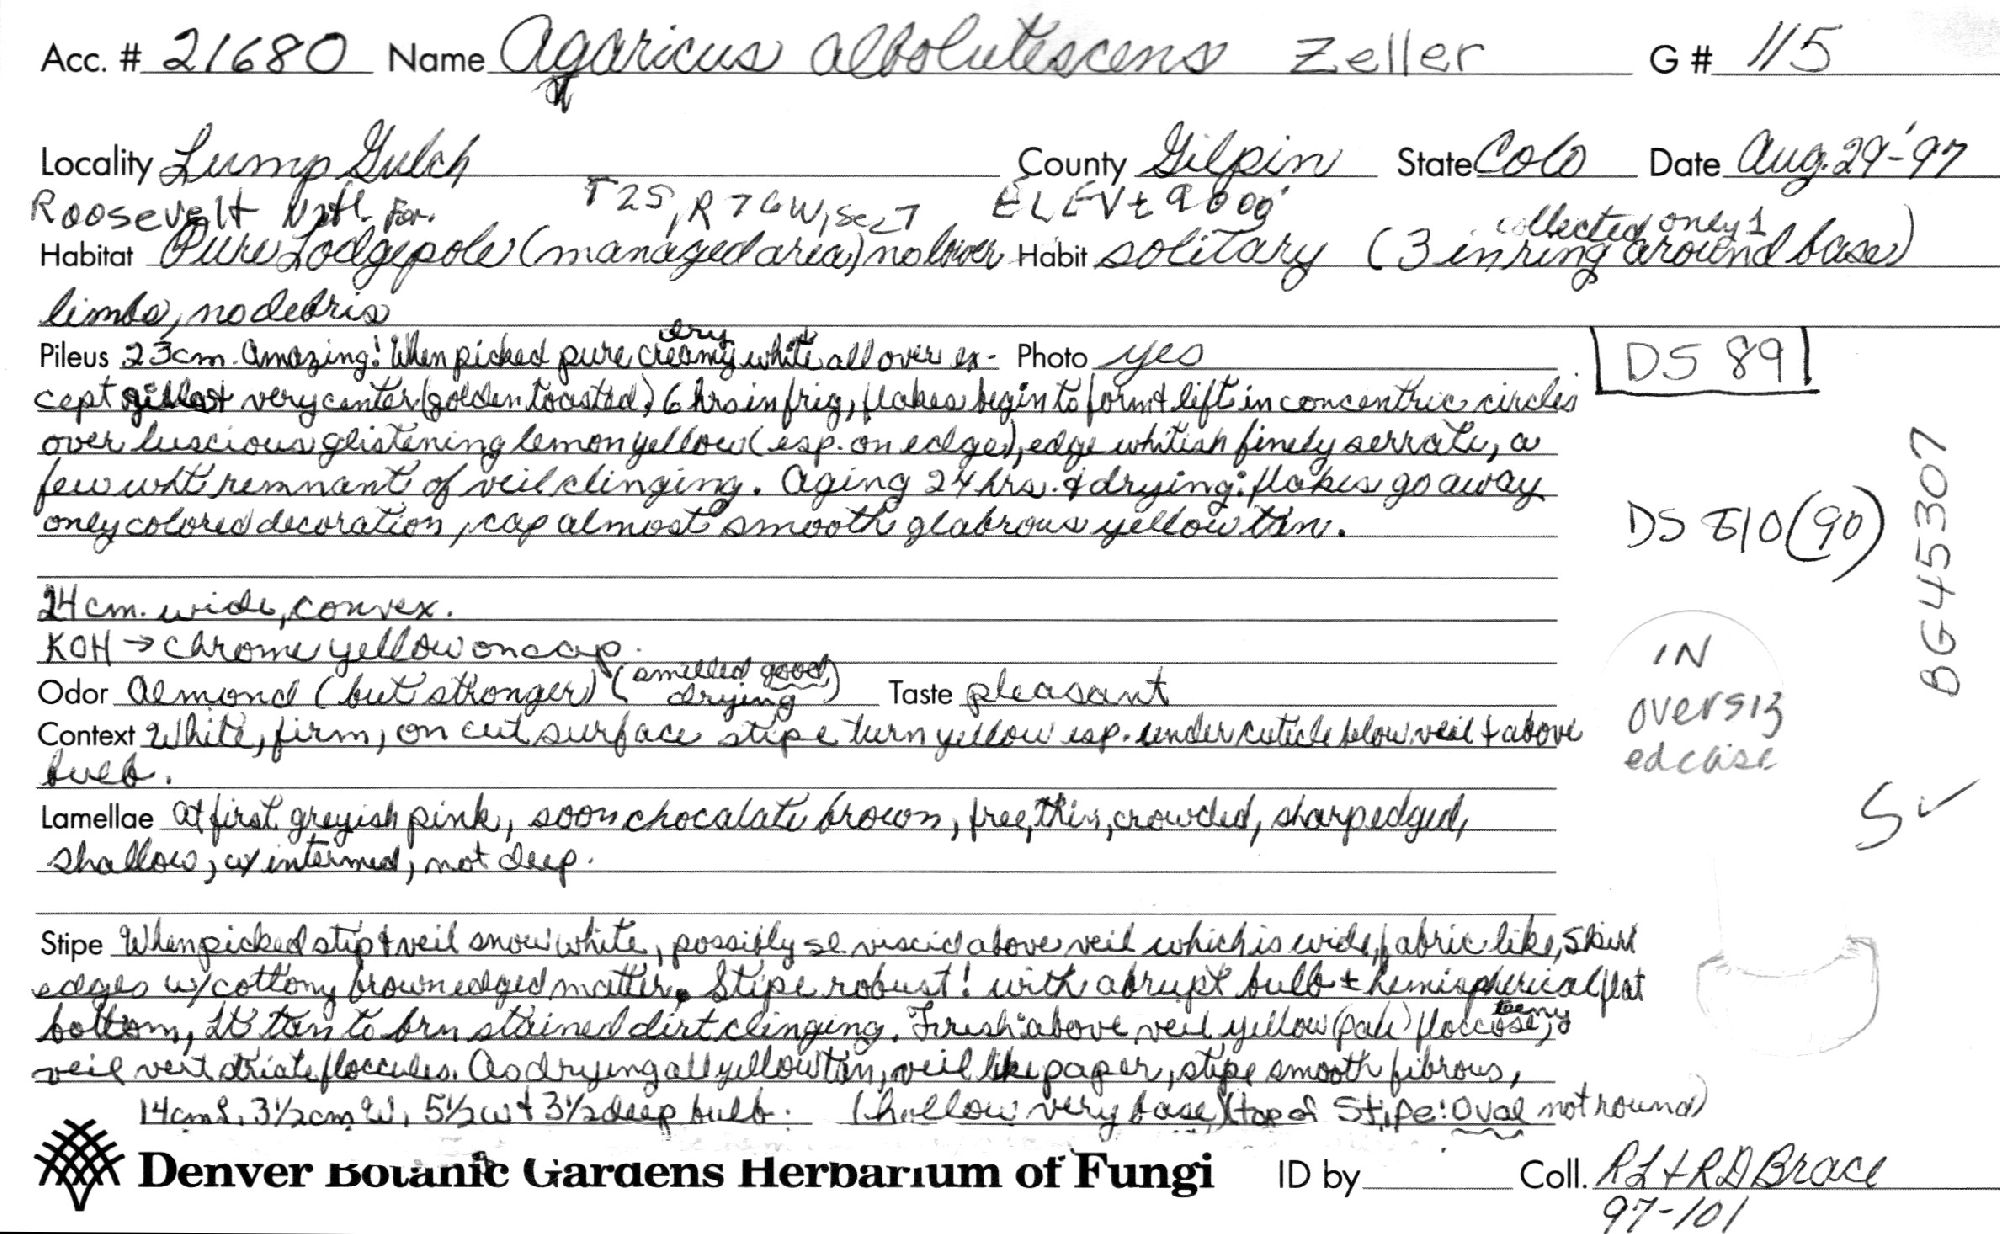 Acc. # 21680 Name Agaricus albolutescens Zeller G # 115
Locality Lump Gulch County Gilpin State Colo Date Aug. 29 '97
Roosevelt Natl. For. T2S, R76W, Sec 7 ELEV ± 9000'
collected only 1
Habitat Pure Lodgepole (managed area) no lower Habit solitary (3 in ring around base)
limbs, no debris
dry
Pileus 23cm. Amazing! When picked pure creamy white all over ex- Photo yes
DS 89
cept very center (golden toasted) 6 hrs in frig, flakes begin to form & lift in concentric circles
over luscious glistening lemon yellow (esp. on edge), edge whitish finely serrate, a
few wht remnant of veil clinging. Aging 24 hrs. & drying: flakes go away
only colored decoration, cap almost smooth glabrous yellow tan.
DS 810 (90)
BG45307
24 cm. wide, convex.
KOH → chrome yellow on cap.
IN
oversiz
ed case
Odor Almond (but stronger) (smelled good drying) Taste pleasant
Context White, firm, on cut surface stipe turn yellow esp. under cuticle blow veil & above
bulb.
Lamellae at first greyish pink, soon chocalate brown, free, thin, crowded, sharp edged,
shallow, w/ intermed, not deep.
Stipe When picked stip & veil snow white, possibly sl viscid above veil which is wide, fabric like, skirt
edges w/ cottony brown edged matter. Stipe robust! with abrupt bulb ± hemispherical flat
bottom, lt tan to brn stained dirt clinging. Fresh: above veil yellow (pale) floccose, teeny
veil vert striate floccules. As drying all yellow tan, veil like paper, stipe smooth fibrous,
14cm L, 3½cm W, 5½ w & 3½ deep bulb. (hollow very base) (top of stipe: oval not round)
Denver Botanic Gardens Herbarium of Fungi ID by Coll. RL & RD Brace
97-101